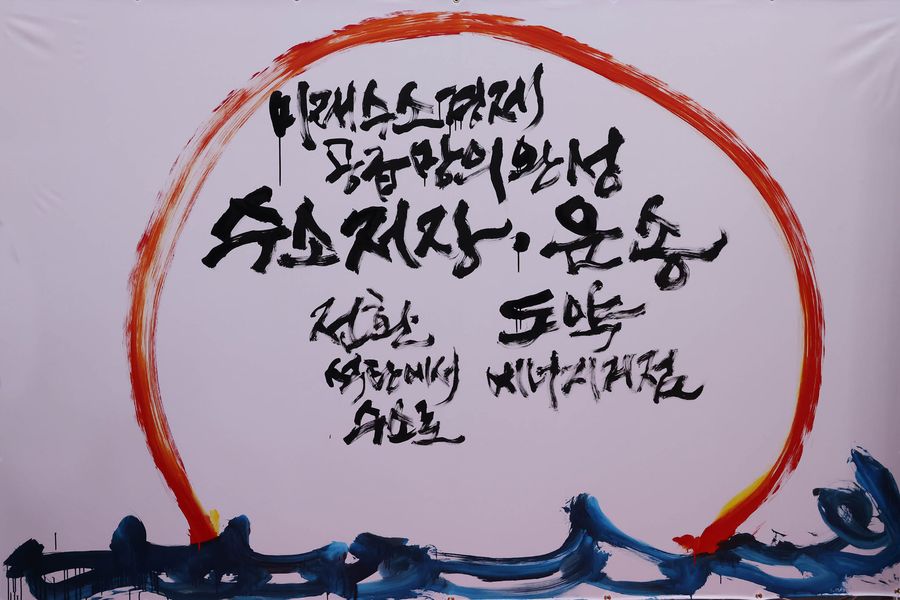 미래 수소 경제
공급망의 완성
수소 저장·운송
전환
석탄에서
수소로
도약
에너지 거점